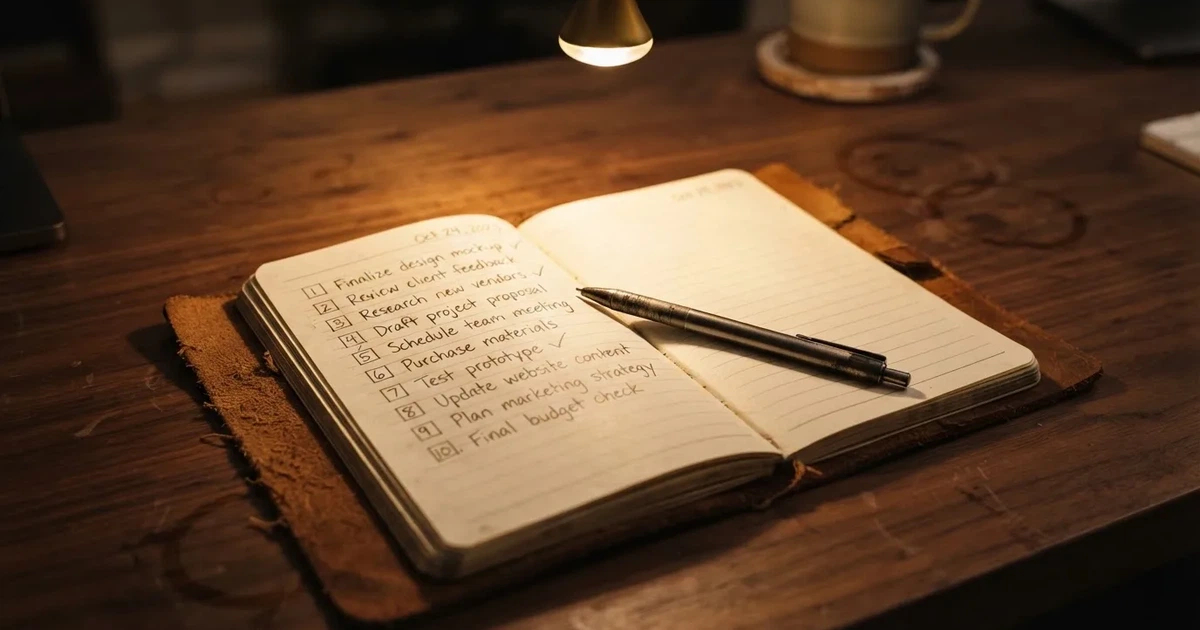 Oct 24, 202
1 Finalize design mockup ✓
2 Review client feedback
3 Research new vendors ✓
4 Draft project proposal
5 Schedule team meeting
6 Purchase materials
7 Test prototype ✓
8 Update website content
9 Plan marketing strategy
10. Final budget check